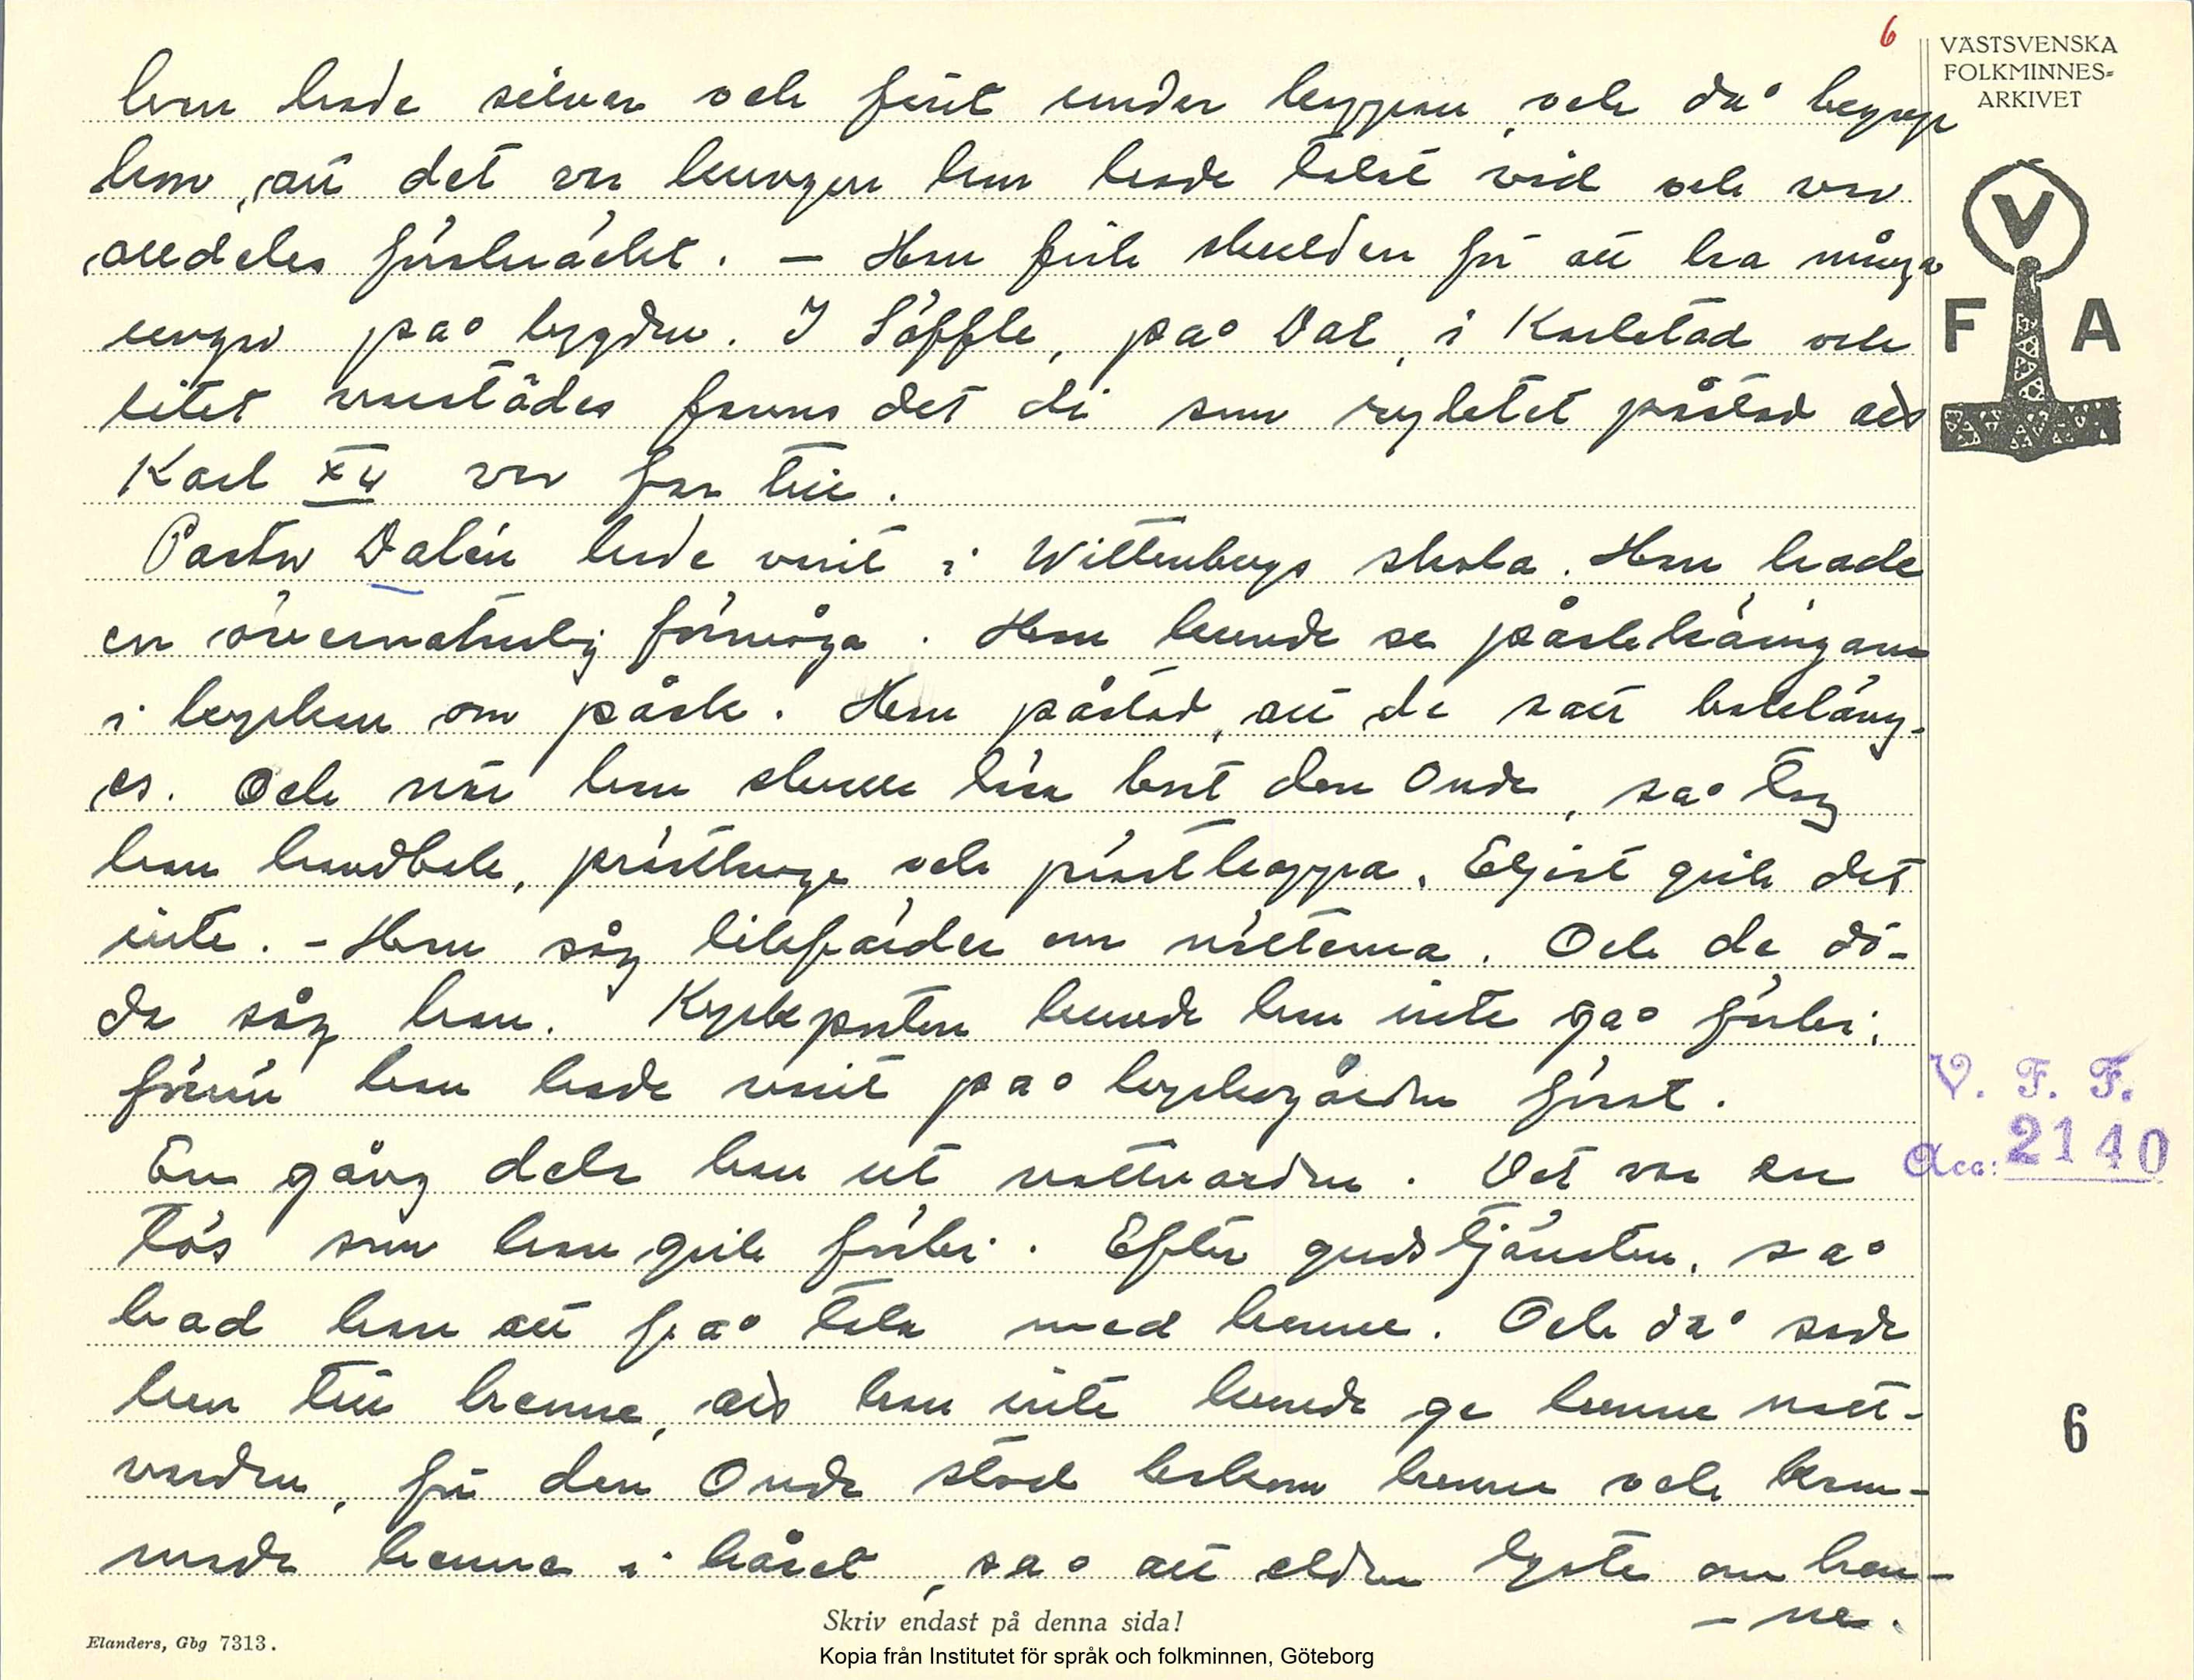 6
VÄSTSVENSKA
FOLKMINNES-
ARKIVET
V
F A
han hade silver och fint under kappan, och då begrep
han, att det var kungen han hade talat vid och var
alldeles förskräckt. — Han fick skulden för att ha många
ungar på bygden. I Säffle, på Dal, i Karlstad och
litet varstädes fanns det di som ryktet påstod att
Karl XV var far till.
Pastor Dalén hade varit i Wittenbergs skola. Han hade
en övernaturlig förmåga. Han kunde se påskkäringarna
i kyrkan om påsk. Han påstod, att de satt bakläng-
es. Och när han skulle köra bort den Onde, så tog
han handbok, prästkrage och prästkappa. Eljest gick det
inte. - Han såg likfärder om nätterna. Och de dö-
da såg han. Kyrkporten kunde han inte gå förbi,
förrän han hade varit på kyrkogården först.
En gång dela han ut nattvarden. Det var en
tös som han gick förbi. Efter gudstjänsten, så
bad han att få tala med henne. Och då sade
han till henne, att han inte kunde ge henne natt-
varden, för den Onde stod bakom henne och kam-
made henne i håret, så att elden lyste om hen-
- ne.
V. F. F.
Acc: 2140
6
Skriv endast på denna sida!
Elanders, Gbg 7313.
Kopia från Institutet för språk och folkminnen, Göteborg